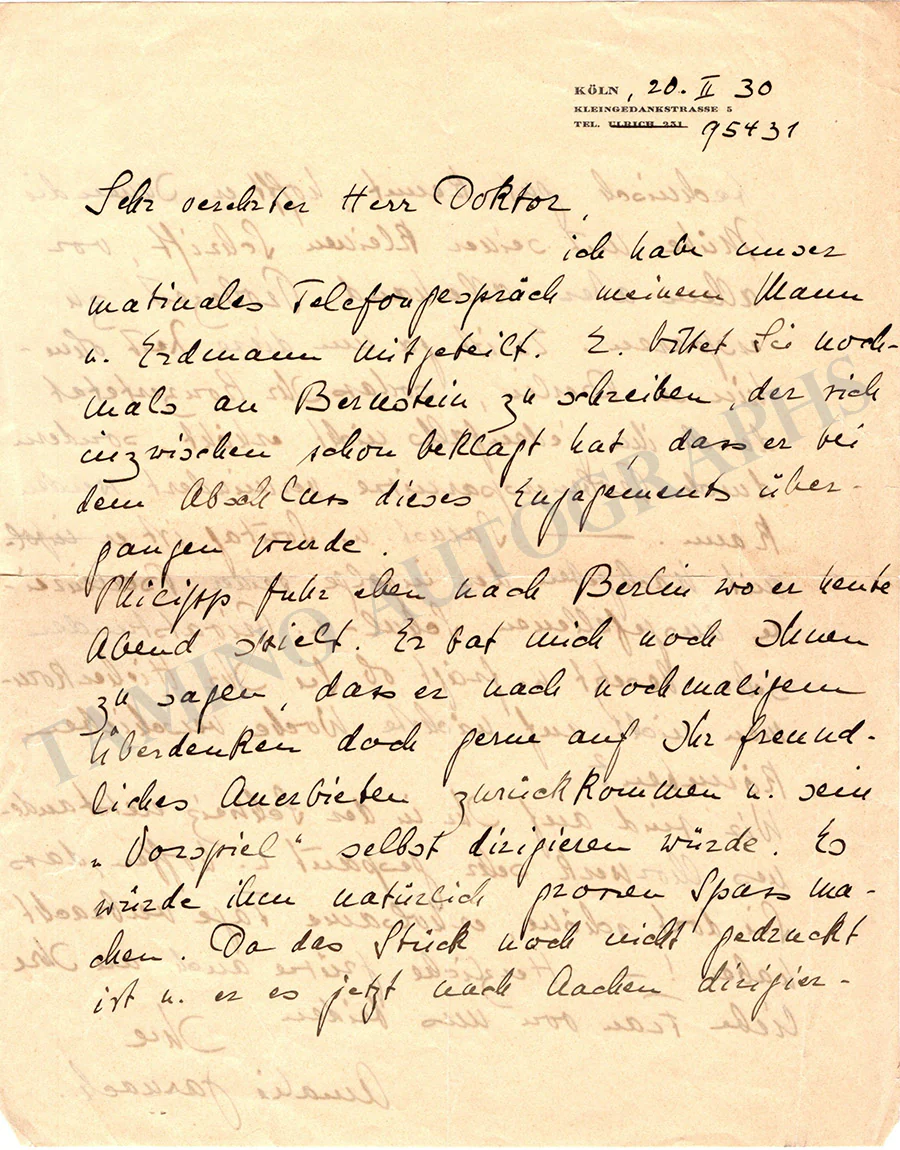 KÖLN, 20. II 30
KLEINGEDANKSTRASSE 5
TEL. ULRICH 251 95431
Sehr verehrter Herr Doktor,
ich habe unser
matinales Telefongespräch meinem Mann
u. Erdmann mitgeteilt. E. bittet Sie noch-
mals an Bernstein zu schreiben, der sich
inzwischen schon beklagt hat, dass er bei
dem Abschluss dieses Engagements über-
gangen wurde.
Philipp fuhr eben nach Berlin wo er heute
Abend spielt. Er bat mich noch Ihnen
zu sagen, dass er nach nochmaligem
Überdenken doch gerne auf Ihr freund-
liches Anerbieten zurückkommen u. sein
„Vorspiel" selbst dirigieren würde. Es
würde ihm natürlich grossen Spass ma-
chen. Da das Stück noch nicht gedruckt
ist u. er es jetzt nach Aachen dirigier-
TAMINO AUTOGRAPHS